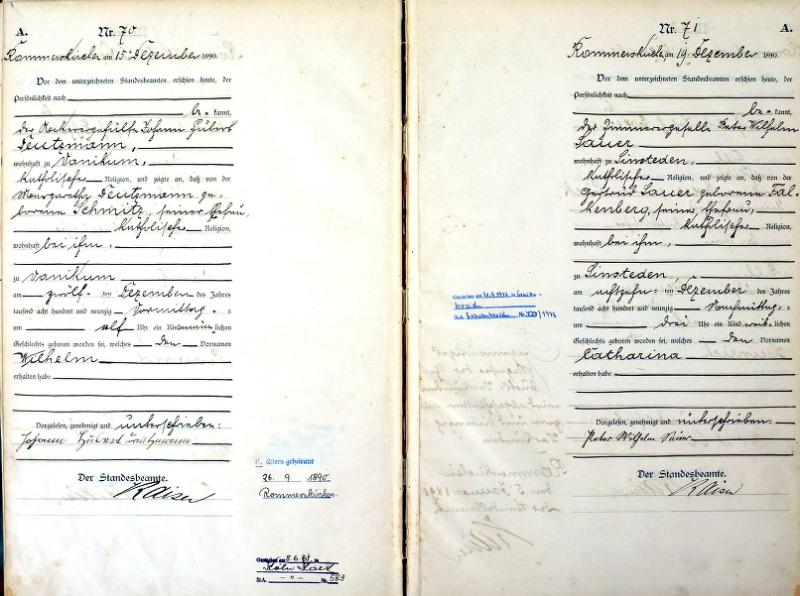 A.
Nr. 70
Rommerskirchen am 15 Dezember 1890.
Vor dem unterzeichneten Standesbeamten erschien heute, der
Persönlichkeit nach
be- kannt,
der Ackergehülfe Johann Hubert
Deutzmann,
wohnhaft zu Vanikum,
katholischer Religion, und zeigte an, daß von der
Margaretha Deutzmann ge-
borene Schmitz, seiner Ehefrau,
katholischer Religion,
wohnhaft bei ihm,
zu Vanikum
am zwölf- ten Dezember des Jahres
tausend acht hundert und neunzig Vormittag- s
um elf Uhr ein Kind männ- lichen
Geschlechts geboren worden sei, welches den Vornamen
Wilhelm
erhalten habe
Vorgelesen, genehmigt und unterschrieben:
Johann Hubert Deutzmann
Der Standesbeamte.
Kaiser
Eltern geheiratet
26. 9 1890
Rommerskirchen
Gestorben am 8.6. in
Köln
StA. Nr. 583
Nr. 71
A.
Rommerskirchen am 19 Dezember 1890.
Vor dem unterzeichneten Standesbeamten erschien heute, der
Persönlichkeit nach
be- kannt,
der Zimmergeselle Peter Wilhelm
Sauer
wohnhaft zu Sinsteden,
katholischer Religion, und zeigte an, daß von der
Gertrud Sauer geborene Fal-
kenberg, seiner Ehefrau,
katholischer Religion,
wohnhaft bei ihm,
zu Sinsteden,
am achtzehn- ten Dezember des Jahres
tausend acht hundert und neunzig Nachmittag- s
um drei Uhr ein Kind weib- lichen
Geschlechts geboren worden sei, welches den Vornamen
Catharina
erhalten habe
Vorgelesen, genehmigt und unterschrieben:
Peter Wilhelm Sauer
Der Standesbeamte.
Kaiser
Gestorben am